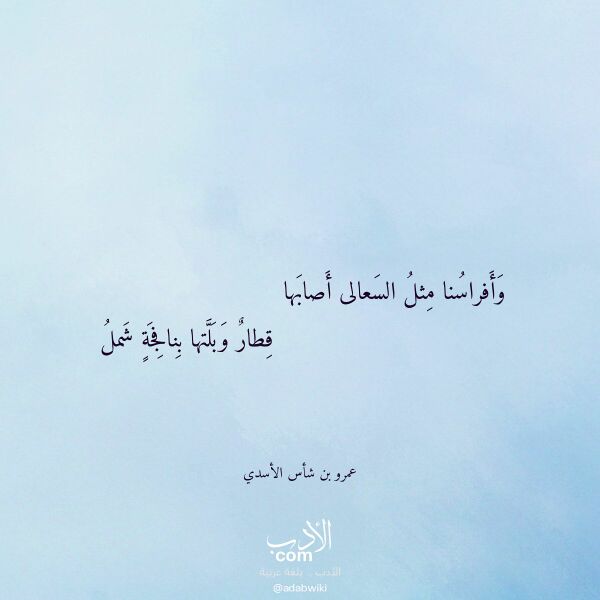 وَأَفراسُنا مِثلُ السَعالى أَصابَها
قِطارٌ وَبَلَّتها بِنافِجَةٍ شَملُ
عمرو بن شأس الأسدي
الأدب
com
الأدب .. بلغة عربية
@adabwiki